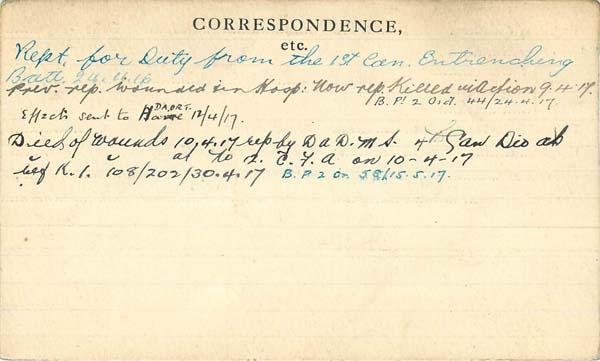 CORRESPONDENCE,
etc.
Rept. for Duty from the 1st Can. Entrenching
Batt. 24.11.16
Prev. rep. Wounded in Hosp: Now rep Killed in Action 9.4.17.
B.P! 2 O.d. 44/24.4.17.
Effects sent to 12/4/17.
Died of Wounds 10,4.17 rep by D a D.M.S. 4th Can Div
at No 12. C.F.A on 10-4-17
K.I. 108/202/30.4.17 B.P 2 Or. 58/15.5.17.